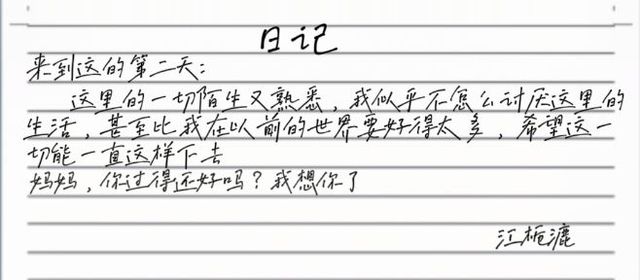 日记
来到这的第二天：
这里的一切陌生又熟悉，我似乎不怎么讨厌这里的
生活，甚至比我在以前的世界要好得太多，希望这一
切能一直这样下去
妈妈，你过得还好吗？我想你了
江栀漉